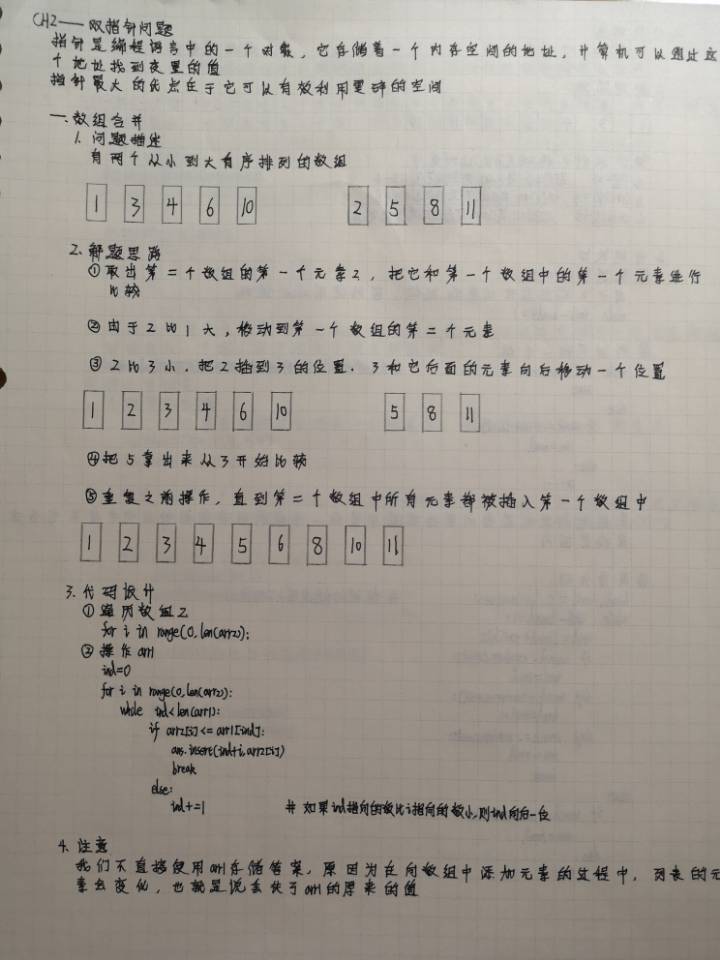 CH2——双指针问题
指针是编程语言中的一个对象，它存储着一个内存空间的地址，计算机可以通过这
个地址找到夜里的值
指针最大的优点在于它可以有效利用零碎的空间
一.数组合并
1. 问题描述
有两个从小到大有序排列的数组
1 3 4 6 10 2 5 8 11
2. 解题思路
①取出第二个数组的第一个元素2，把它和第一个数组中的第一个元素进行
比较
②由于2比1大，移动到第一个数组的第二个元素
③2比3小，把2插到3的位置.3和它后面的元素向后移动一个位置
1 2 3 4 6 10 5 8 11
④把5拿出来从3开始比较
⑤重复之前操作，直到第二个数组中所有元素都被插入第一个数组中
1 2 3 4 5 6 8 10 11
3. 代码设计
①遍历数组2
for i in range(0,len(arr2)):
②操作arr1
ind=0
for i in range(0,len(arr2)):
while ind<len(arr1):
if arr2[i]<=arr1[ind]:
ans.insert(ind+i,arr2[i])
break
else:
ind+=1 # 如果ind指向的数比i指向的数小,则ind向后一位
4. 注意
我们不直接使用arr1存储答案，原因为在向数组中添加元素的过程中，列表的元
素会变化，也就是说丢失了arr1的原来的值